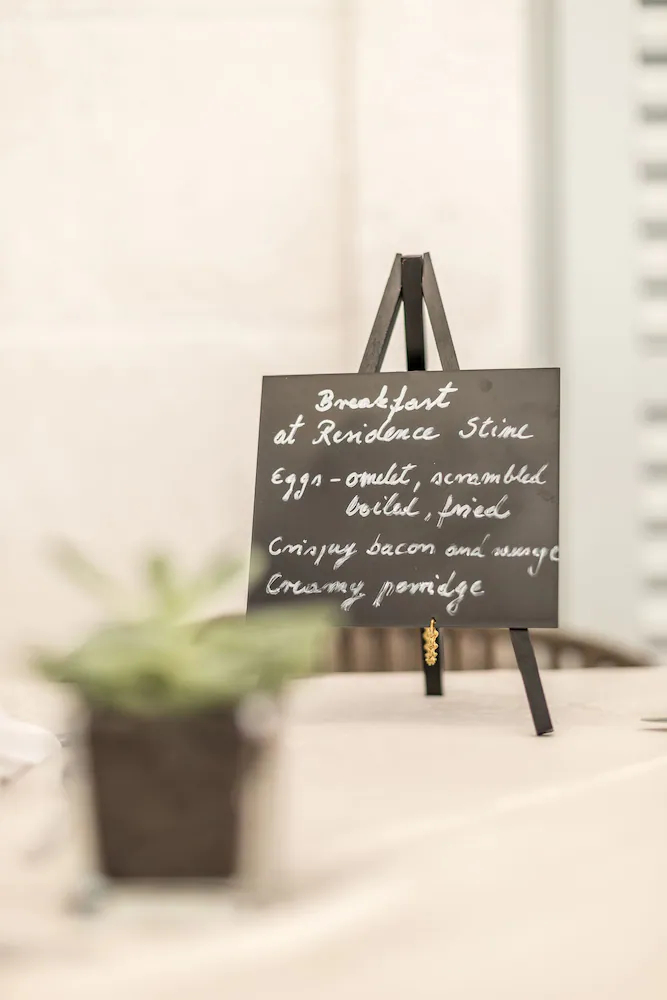 Breakfast
at Residence Stine
Eggs - omelet, scrambled
boiled, fried
Crispy bacon and sausage
Creamy porridge